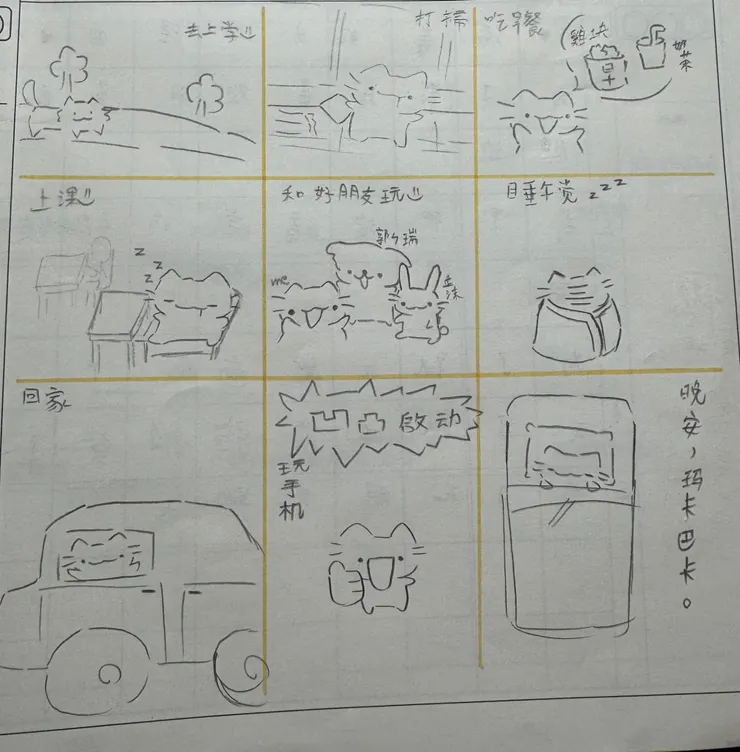 去上学
打掃
吃早餐
雞块
奶茶
早
上课
z z z
和好朋友玩
me
瑞
睡午觉 z z z
回家
凹凸啟动
玩手机
晚安，玛卡巴卡。